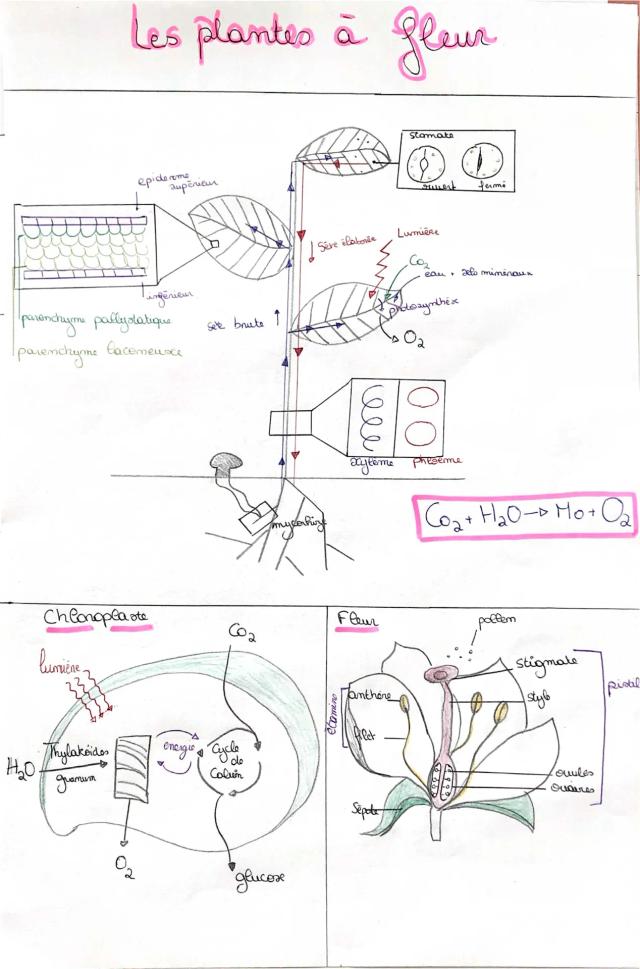 Les plantes à fleur
stomate
ouvert
fermé
epiderme
supérieur
inférieur
parenchyme pallysatique
parenchyme lacuneuse
sève brute
sève élaborée
Lumière
Co2
eau + sels minéraux
photosynthèse
O2
xylème
phloème
mycorhize
Co2 + H2O → Mo + O2
Chloroplaste
lumière
CO2
H2O
Thylakoïdes
granum
energie
Cycle
de
Calvin
O2
glucose
Fleur
pollen
stigmate
anthère
style
pistil
étamine
filet
ovules
ovaires
Sépale